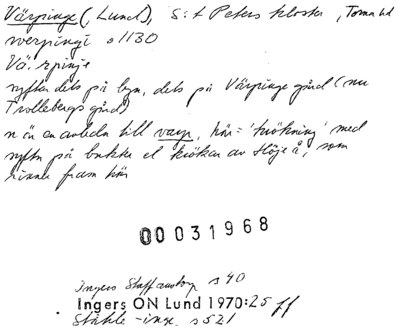 Värpinge (, Lund), S:t Peters kloster, Torna hd
werpingi o 1130
Vä:rpinje
syftar dels på byn, dels på Värpinge gård (nu
Trollebergs gård)
n är en avledn till varp, här = 'krökning' med
syftn på bukten el kröken av Höje å, som
rinner fram här
00031968
Ingers Staffanstorp s 40
Ingers ON Lund 1970:25 ff
Ståhle -inge s 521